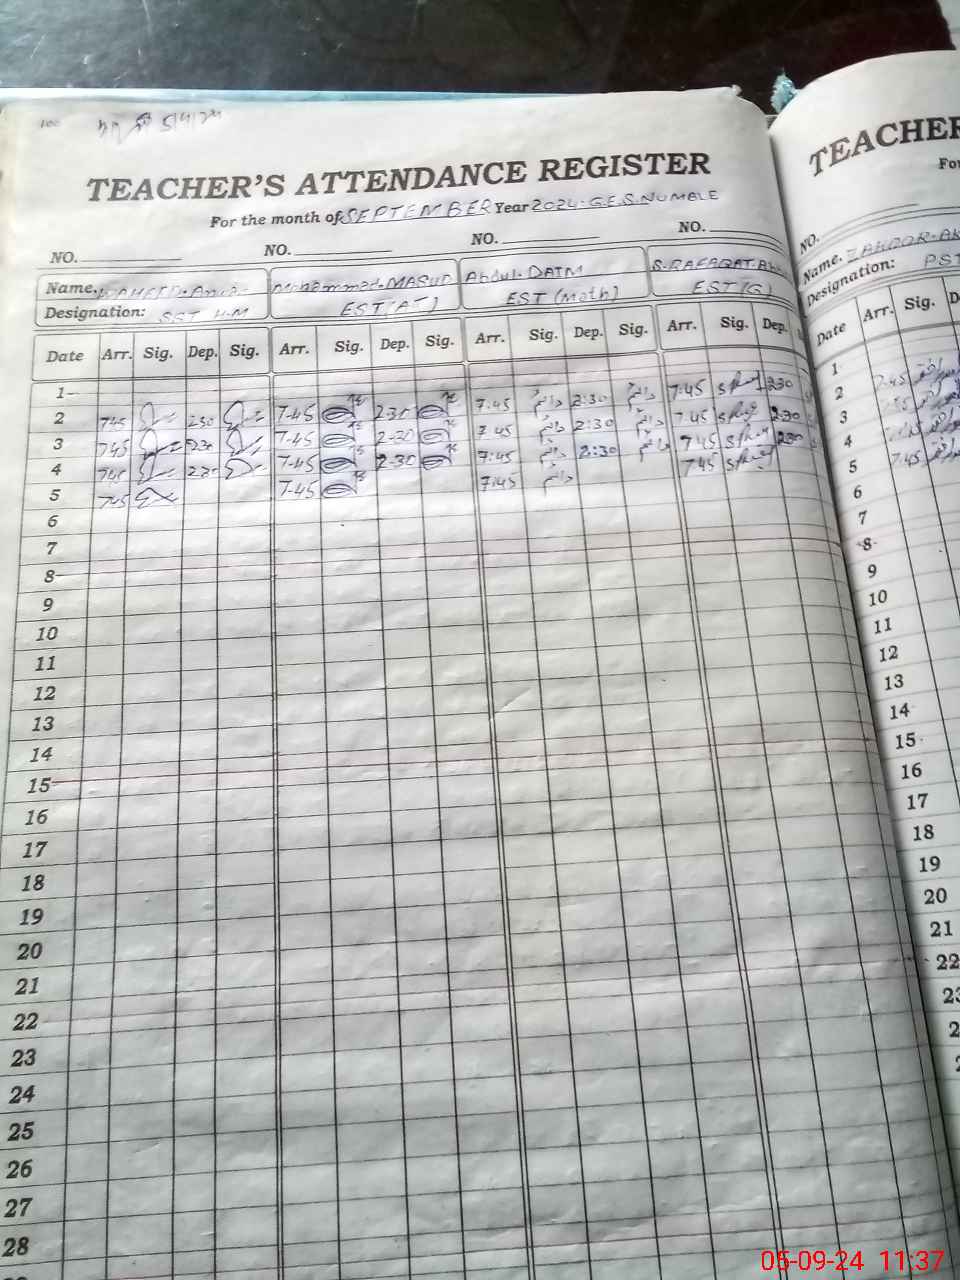 100
TEACHER'S ATTENDANCE REGISTER
For the month of SEPTEMBER Year 2024. G.E.S. NUMBLE
NO. NO. NO. NO.
Name. Mohammad. MASUD Abdul. DAIM S. RAFAQAT
Designation: SST H.M EST (AT) EST (Math) EST (G)
Date Arr. Sig. Dep. Sig. Arr. Sig. Dep. Sig. Arr. Sig. Dep. Sig. Arr. Sig. Dep.
1
2 745 230 7-45 2-30 7:45 دائم 2:30 دائم 7.45 230
3 745 230 7-45 2-30 7:45 دائم 2:30 دائم 7.45 2.30
4 745 230 7-45 2-30 7:45 دائم 2:30 دائم 7.45 230
5 745 7-45 7:45 دائم 7.45
6
7
8
9
10
11
12
13
14
15
16
17
18
19
20
21
22
23
24
25
26
27
28
TEACHER
For
NO.
Name. ZAHOOR
Designation: PST
Date Arr. Sig.
1
2 7.45
3
4
5 7.45
6
7
8
9
10
11
12
13
14
15
16
17
18
19
20
21
22
05-09-24 11:37